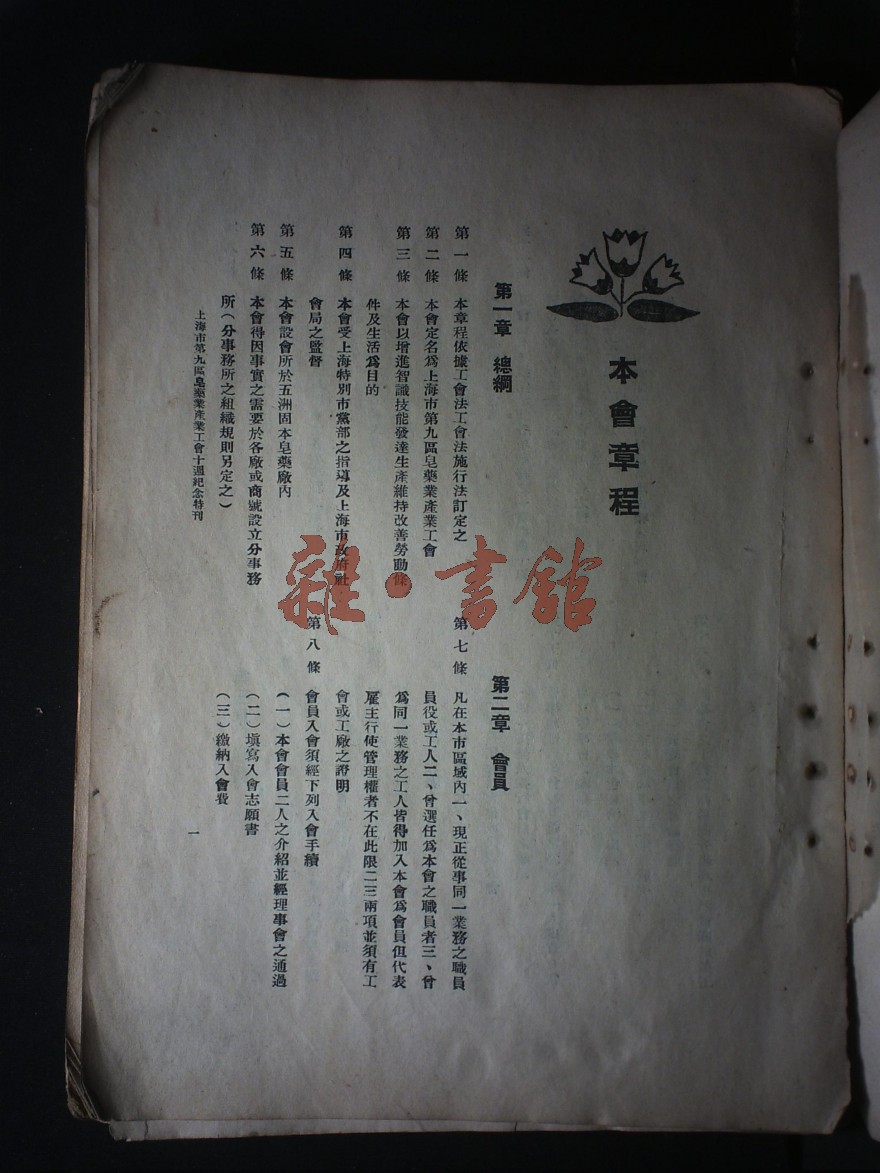 本會章程
第一章　總綱
第一條　本章程依據工會法工會法施行法訂定之
第二條　本會定名爲上海市第九區皂藥業產業工會
第三條　本會以增進智識技能發達生產維持改善勞動條
件及生活爲目的
第四條　本會受上海特別市黨部之指導及上海市政府社
會局之監督
第五條　本會設會所於五洲固本皂藥廠內
第六條　本會得因事實之需要於各廠或商號設立分事務
所（分事務所之組織規則另定之）
第二章　會員
第七條　凡在本市區域內一、現正從事同一業務之職員
員役或工人二、曾選任爲本會之職員者三、曾
爲同一業務之工人皆得加入本會爲會員但代表
雇主行使管理權者不在此限二三兩項並須有工
會或工廠之證明
第八條　會員入會須經下列入會手續
（一）本會會員二人之介紹並經理事會之通過
（二）塡寫入會志願書
（三）繳納入會費
上海市第九區皂藥業產業工會十週紀念特刊
一
雜·書館